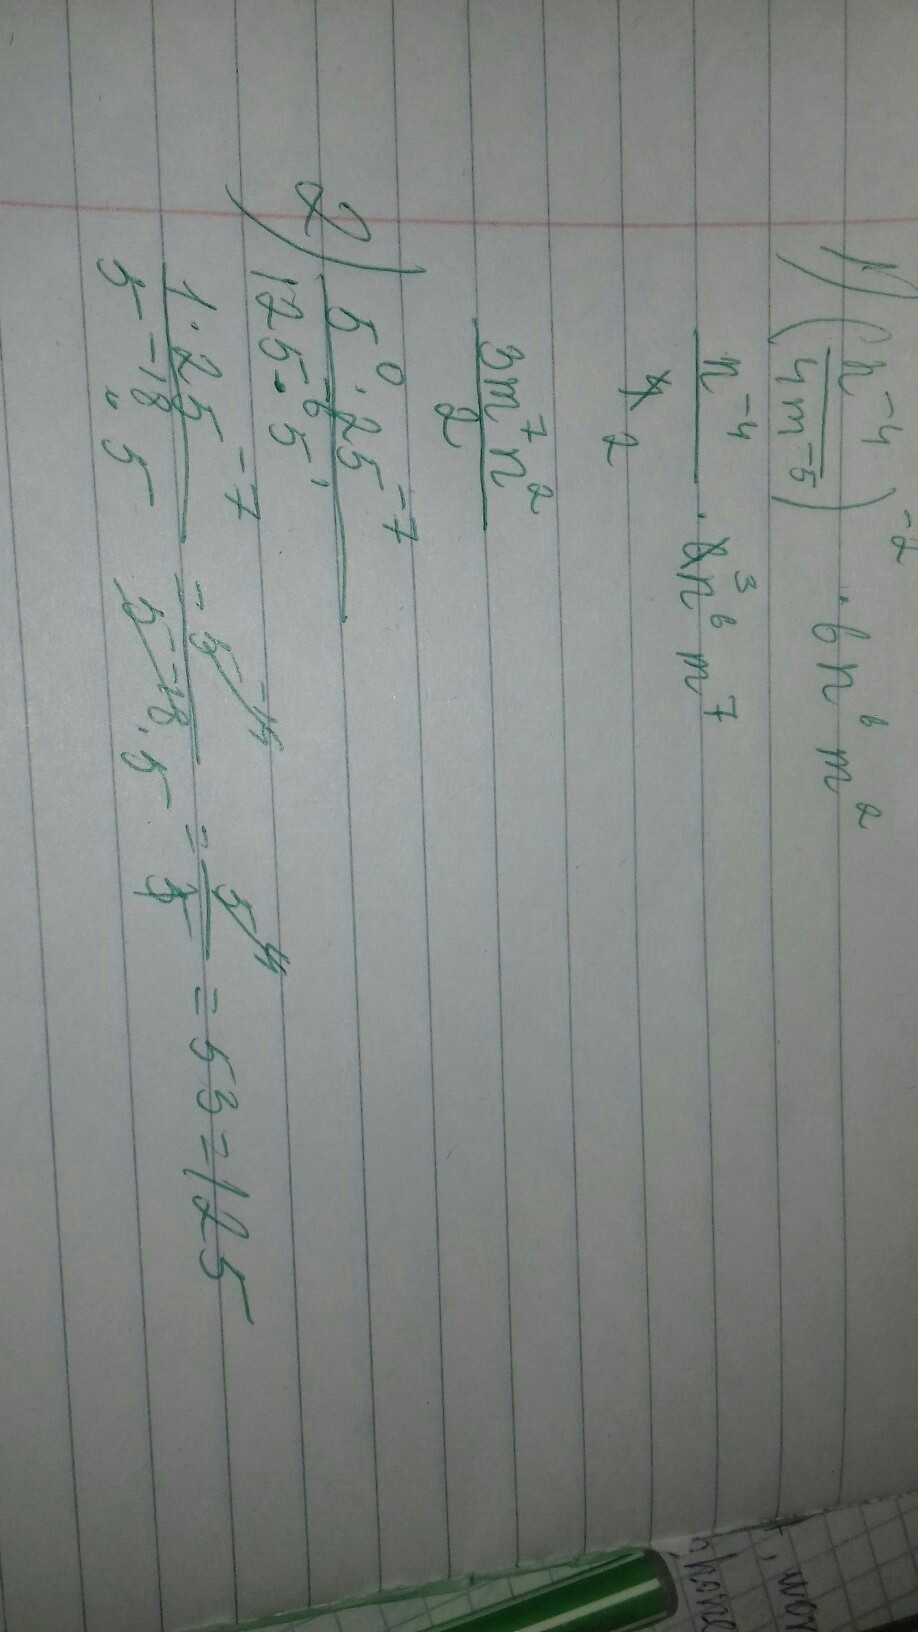 1) (n⁻⁴/4m⁻⁵)⁻² · 6n⁶m²
n⁻⁴/4 2 · 6 3 n⁶ m⁷
3m⁷n²/2
2) 5⁰·25⁻⁷/125⁻⁶·5¹
1·25⁻⁷/5⁻¹⁸·5 = 5⁻¹⁴/5⁻¹⁸·5 = 5⁴/5 = 53 = 125